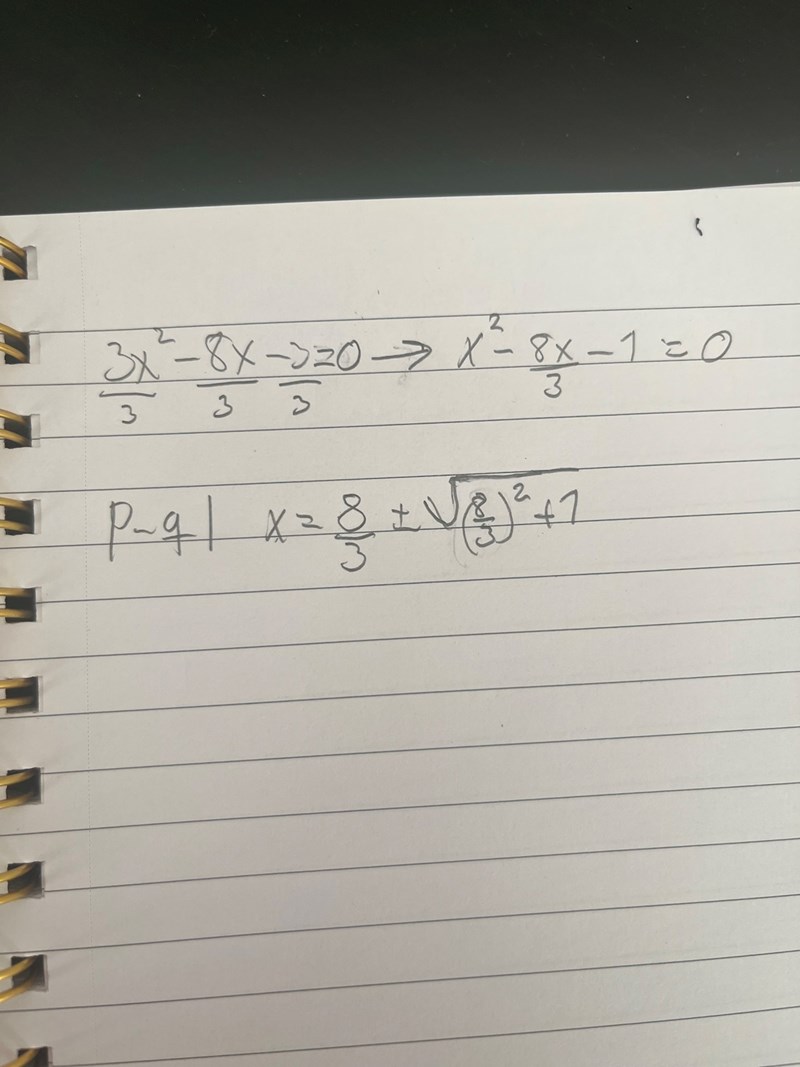 3x²/3 - 8x/3 - 3/3 = 0 → x² - 8x/3 - 1 = 0
p-q | x = 8/3 ± √((8/3)² + 1)